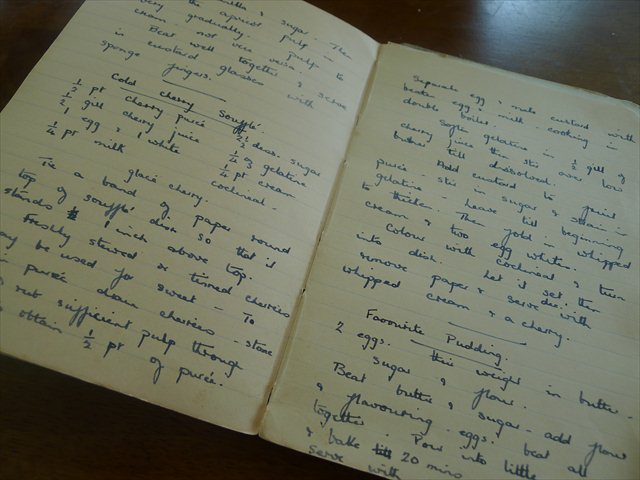 milk & sugar. Then
the apricot pulp in
very gradually. pulp to
cream, not vice versa.
Beat well together & serve
in custard glasses with
sponge fingers.
Cold Cherry Soufflé.
½ pt cherry purée 2½ dess. sugar
½ gill cherry juice ¼ oz gelatine
1 egg & 1 white ¼ pt cream
¼ pt milk cochineal.
glacé cherry.
Tie a band of paper round
top of soufflé dish so that it
stands 1 inch above top.
Freshly stewed or tinned cherries
may be used for sweet - To
purée down cherries - stone
rub sufficient pulp through
obtain ½ pt of purée.
Separate egg & make custard with
beaten egg & milk - cooking in
double boiler.
Soften gelatine in ½ gill of
cherry juice then stir over low
burner till dissolved.
Add custard to fruit
purée - stir in sugar & strain in
gelatine - leave till beginning
to thicken. Then fold in whipped
cream & two egg whites.
Colour with cochineal & turn
into dish. Let it set then
remove paper & serve with
whipped cream & a cherry.
Favourite Pudding.
2 eggs. their weight in butter.
sugar & flour.
Beat butter & sugar - add flour
& flavouring - eggs. beat all
together. Pour into little
& bake 20 mins
serve with